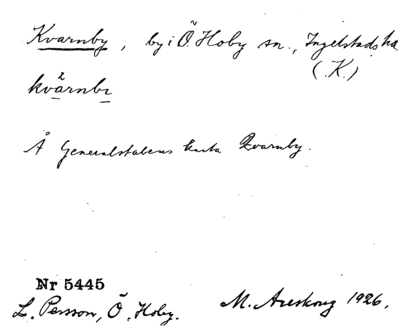 Kvarnby, by i Ö. Hoby sn., Ingelstads hd.
(K.)
kvarnbı
Å Generalstabens karta Qvarnby.
Nr 5445
L. Persson, Ö. Hoby.
M. Areskoug 1926.